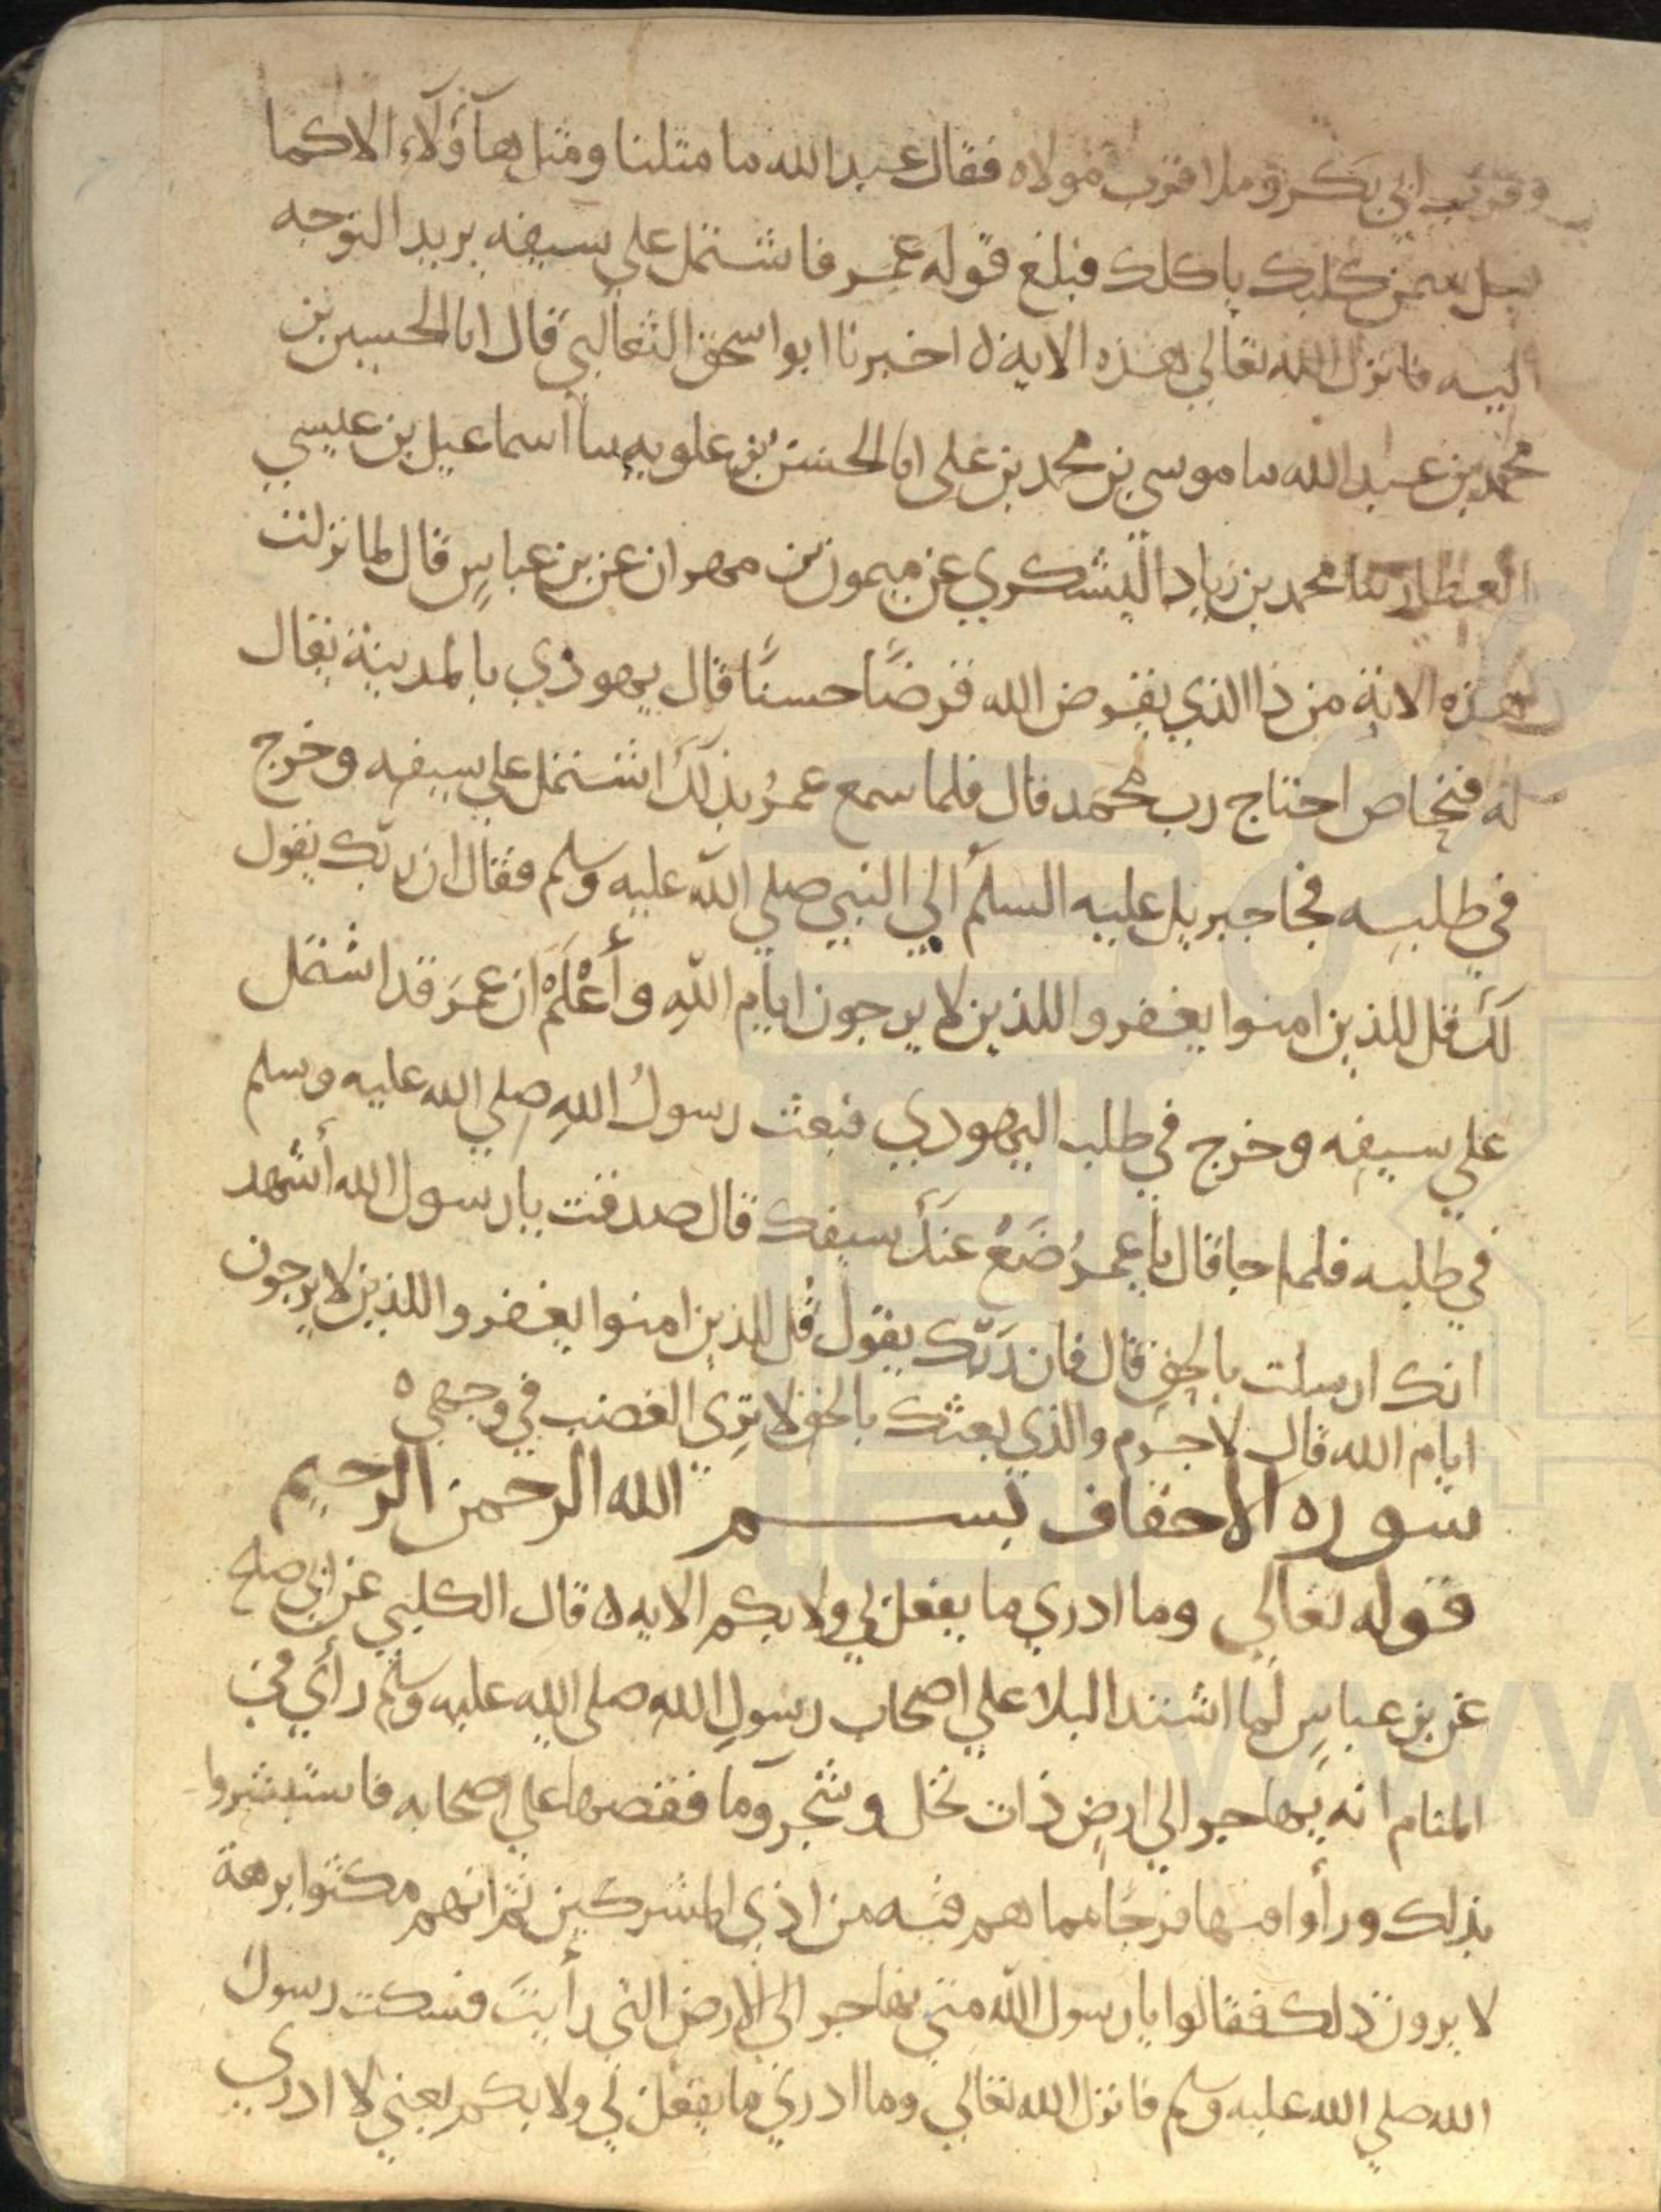 وقرب ابي بكر وملا قرب مولاه فقال عبد الله ما مثلنا ومثل هآؤلآء الا كما
قيل سمن كلبك ياكلك فبلغ قوله عمر فاشتمل على سيفه يريد التوجه
اليه فانزل الله تعالي هذه الاية ه اخبرنا ابو اسحق الثعالبي قال انا الحسين بن
محمد بن عبد الله سا موسي بن محمد بن علي انا الحسن بن علويه سا اسماعيل بن عيسي
العطار سا محمد بن زياد اليشكري عن ميمون بن مهران عن بن عباسٍ قال لما نزلت
هذه الاية من ذا الذي يقرض الله قرضًا حسنًا قال يهودي بالمدينة يقال
له فنخاص احتاج رب محمد قال فلما سمع عمرُ بذلك اشتمل علي سيفه وخرج
في طلبه فجا جبريل عليه السلم الي النبي صلي الله عليه وسلم فقال ان ربك يقول
لك قل للذين امنوا يغفروا للذين لا يرجون ايام اللهِ وأعْلَمْ ان عمرَ قد اشتمل
علي سيفه وخرج في طلب اليهودي فبعث رسولُ اللهِ صلي الله عليه وسلم
في طلبه فلما جا قال يا عمرُ ضَعْ عنكَ سيفك قال صدقت يا رسول الله أشهد
انك ارسلت بالحق قال فان رَبّك يقول قُل للذين امنوا يغفروا للذين لا يرجون
ايام الله قال لا جرم والذي بعثك بالحق لا تري الغضب في وجهي ه
سوره الاحقاف بسم الله الرحمن الرحيم
قوله تعالي وما ادري ما يفعل بي ولا بكم الايه ه قال الكلبي عن ابي صلح
عن بن عباسٍ لما اشتد البلا علي اصحاب رسولِ اللهِ صلي الله عليه وسلم رأي في
المنام انه يهاجر الي ارضٍ ذات نخل وشجر ومآ فقصها علي اصحابه فاستبشروا
بذلك ورأوا منها فرجًا مما هم فيه من اذي المشركين ثم انهم مكثوا برهة
لا يرون ذلك فقالوا يا رسول الله متي نهاجر الي الارض التي رأيتَ فسكت رسول
الله صلي الله عليه وسلم فانزل الله تعالي وما ادري ما يفعل بي ولا بكم يعني لا ادري